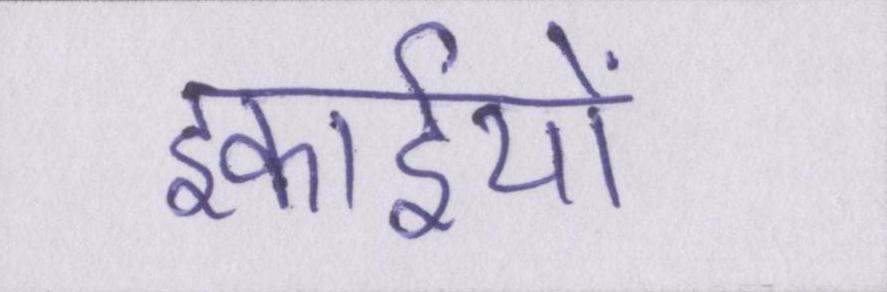 इकाईयों